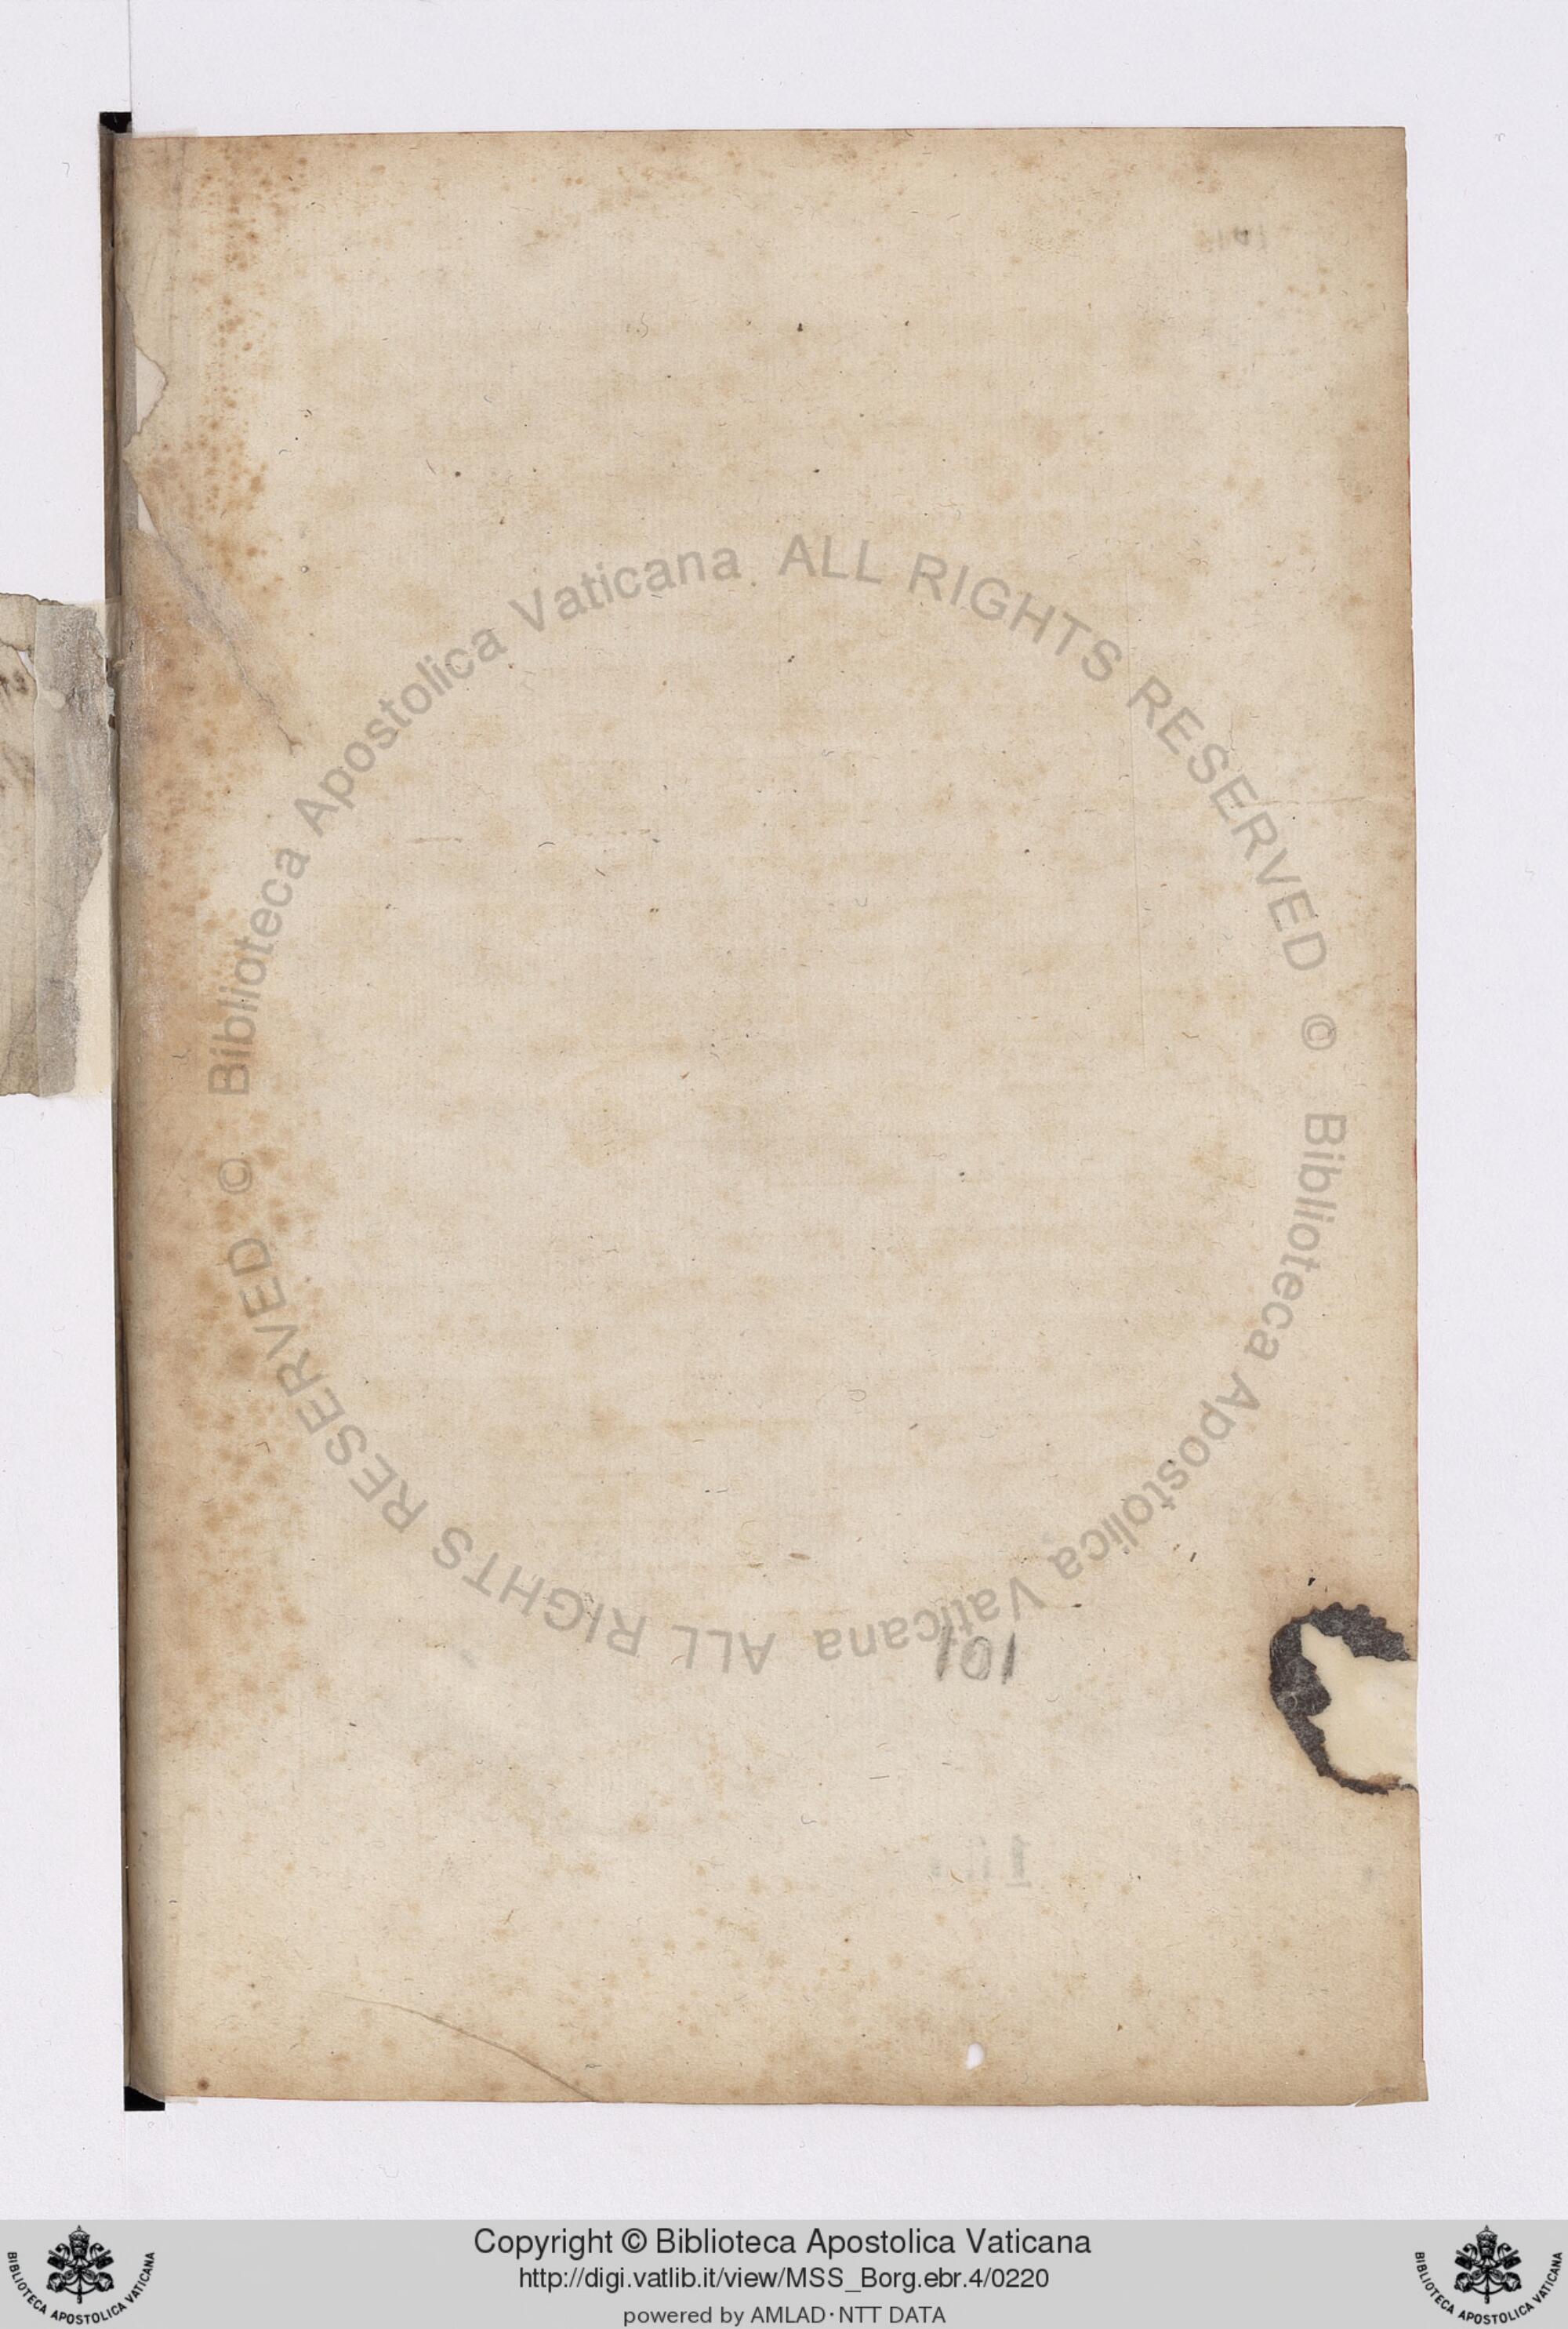 101
© Biblioteca Apostolica Vaticana ALL RIGHTS RESERVED
© Biblioteca Apostolica Vaticana ALL RIGHTS RESERVED
101
Copyright © Biblioteca Apostolica Vaticana
http://digi.vatlib.it/view/MSS_Borg.ebr.4/0220
powered by AMLAD·NTT DATA
BIBLIOTECA APOSTOLICA VATICANA
BIBLIOTECA APOSTOLICA VATICANA